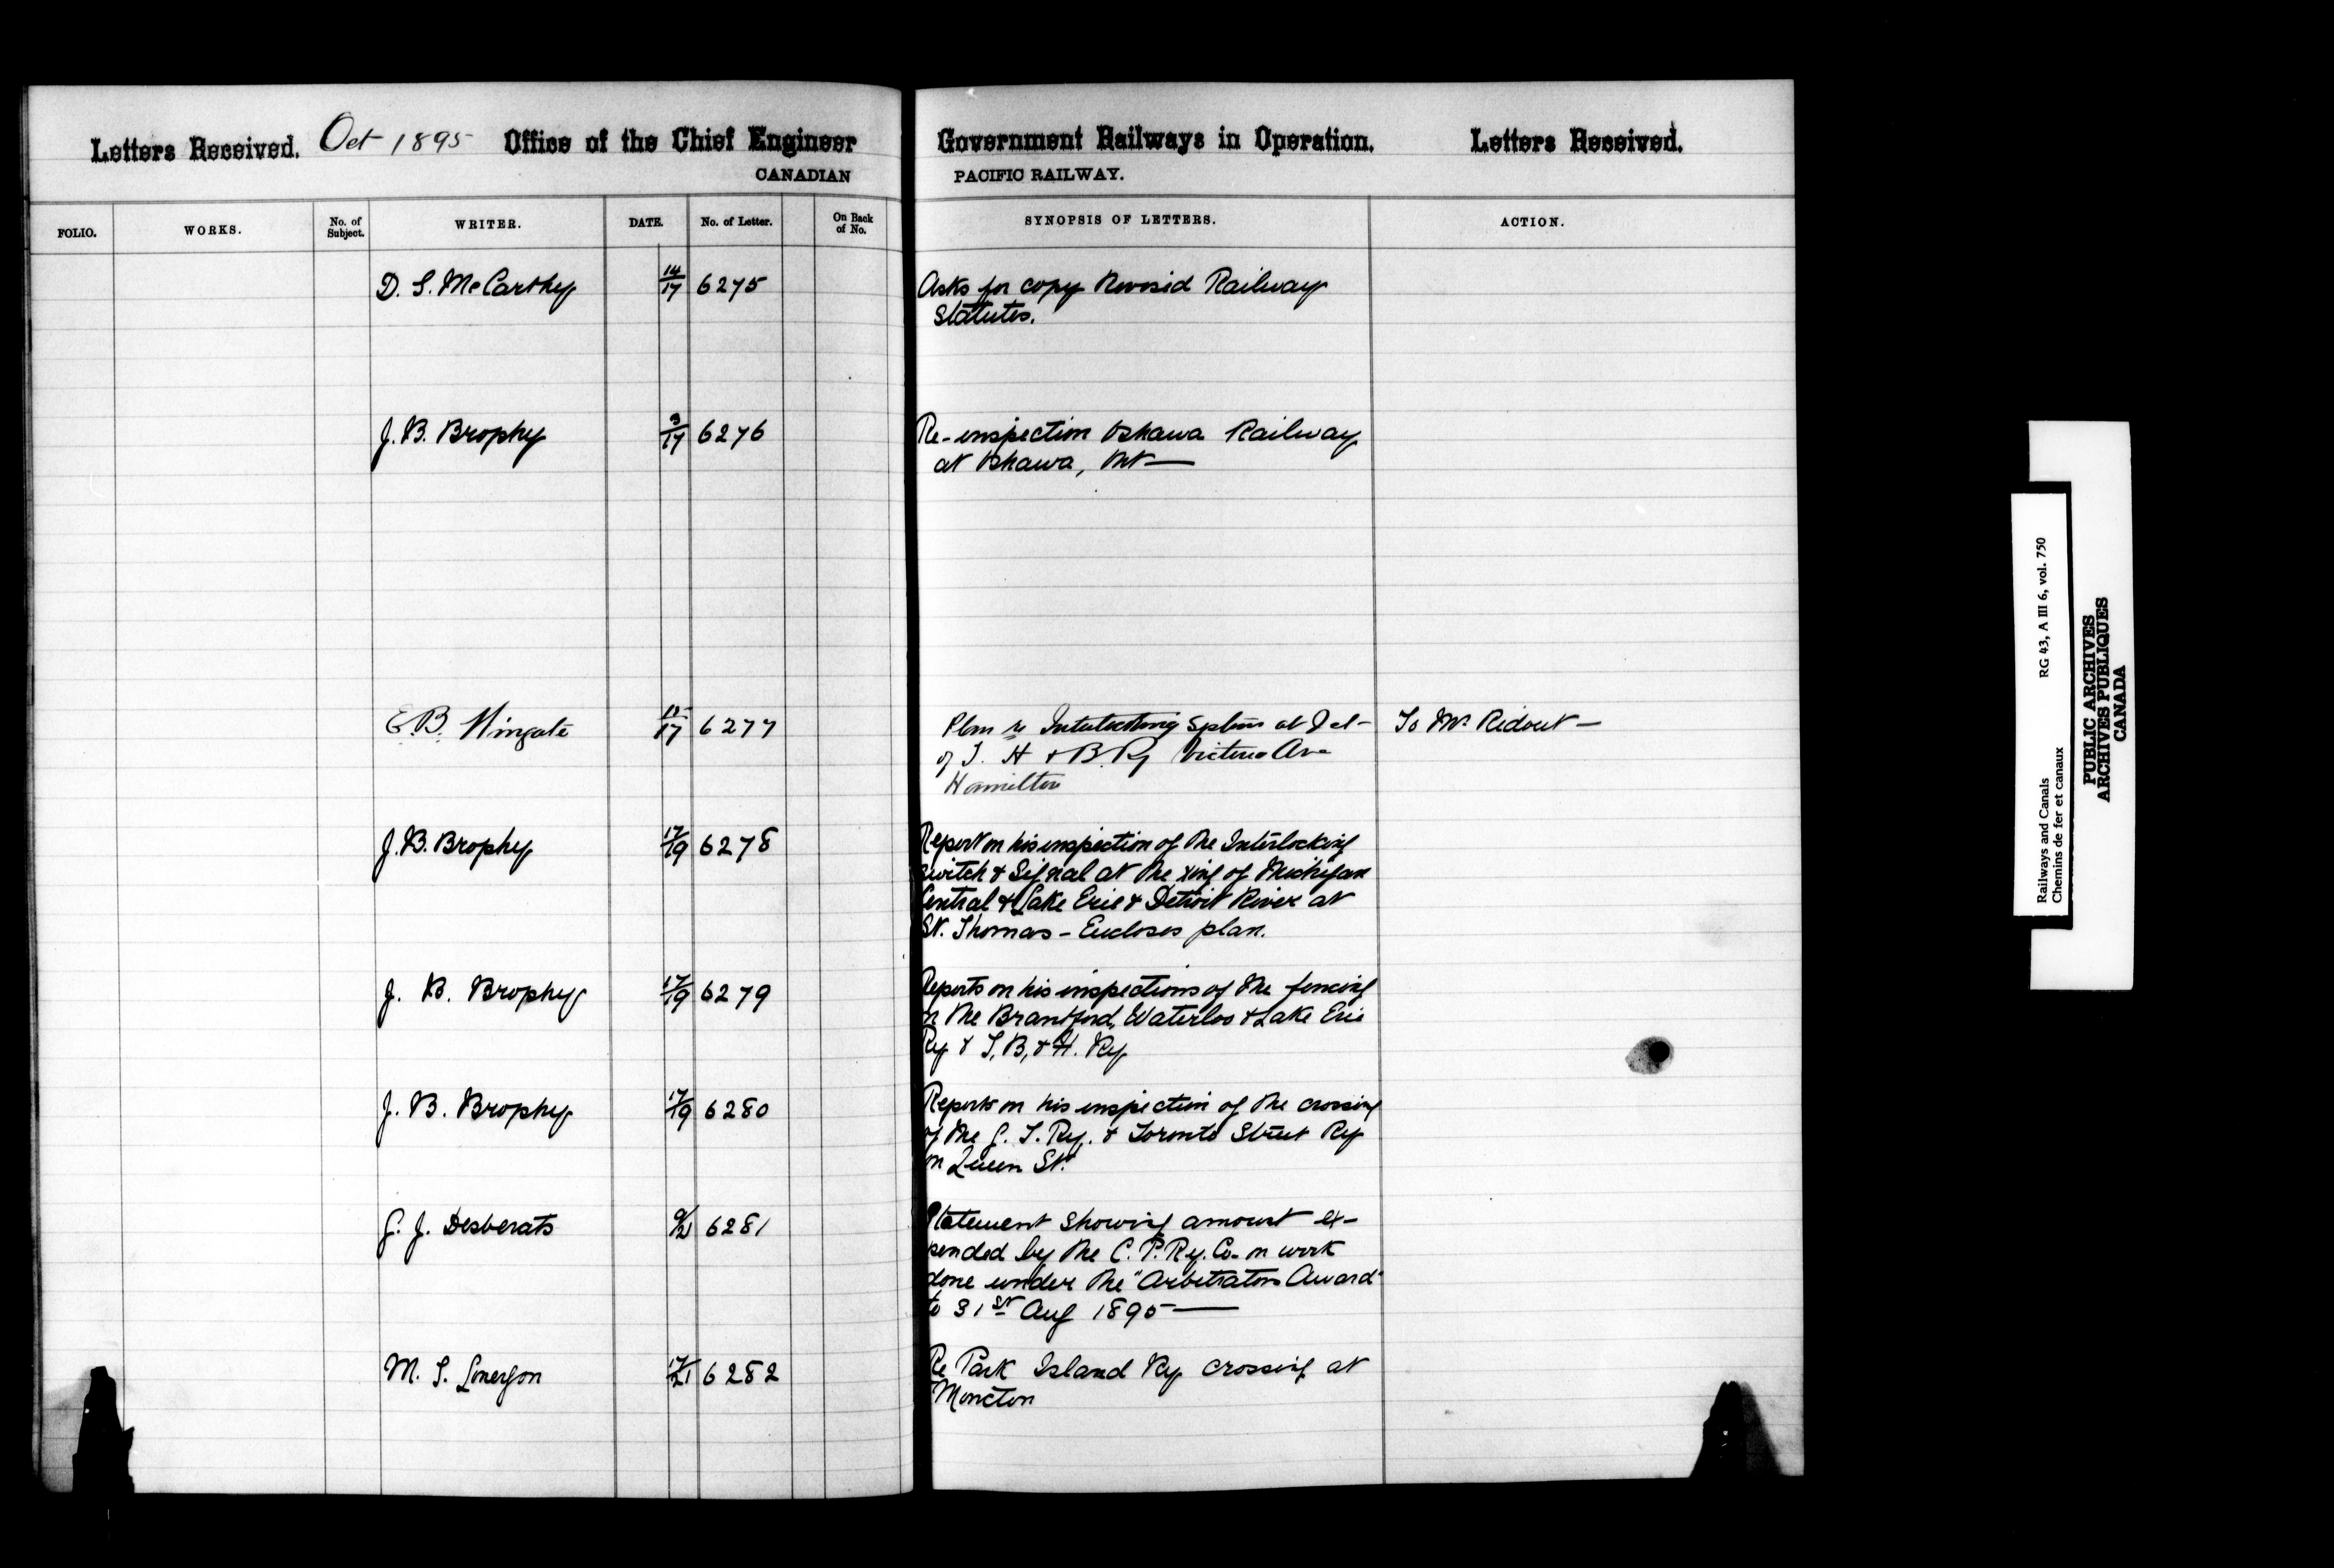 Letters Received. Oct 1895 Office of the Chief Engineer Government Railways in Operation. Letters Received.
CANADIAN PACIFIC RAILWAY.
FOLIO. WORKS. No. of Subject. WRITER. DATE. No. of Letter. On Back of No. SYNOPSIS OF LETTERS. ACTION.
D. S. McCarthy 14/17 6275 Asks for copy Revised Railway
Statutes.
J. B. Brophy 3/17 6276 Re-inspection Oshawa Railway
at Oshawa, Ont—
E. B. Wingate 15/17 6277 Plan re Interlocking System at Jct- To Mr Ridout —
of T. H & B. Ry Victoria Ave
Hamilton
J. B. Brophy 17/19 6278 Report on his inspection of the Interlocking
Switch & Signal at the xing of Michigan
Central & Lake Erie & Detroit River at
St. Thomas - Encloses plan.
J. B. Brophy 17/19 6279 Reports on his inspections of the fencing
on the Brantford, Waterloo & Lake Erie
Ry & T, B, & H. Ry
J. B. Brophy 17/19 6280 Reports on his inspection of the crossing
of the G. T. Ry. & Toronto Street Ry
on Queen St.
G. J. Desbarats 9/21 6281 Statement showing amount ex-
pended by the C. P. Ry. Co. on work
done under the "Arbitrators Award"
to 31st Aug 1895 —
M. S. Lonergon 17/21 6282 Re Park Island Ry crossing at
Moncton
Railways and Canals RG 43, A III 6, vol. 750
Chemins de fer et canaux
PUBLIC ARCHIVES
ARCHIVES PUBLIQUES
CANADA